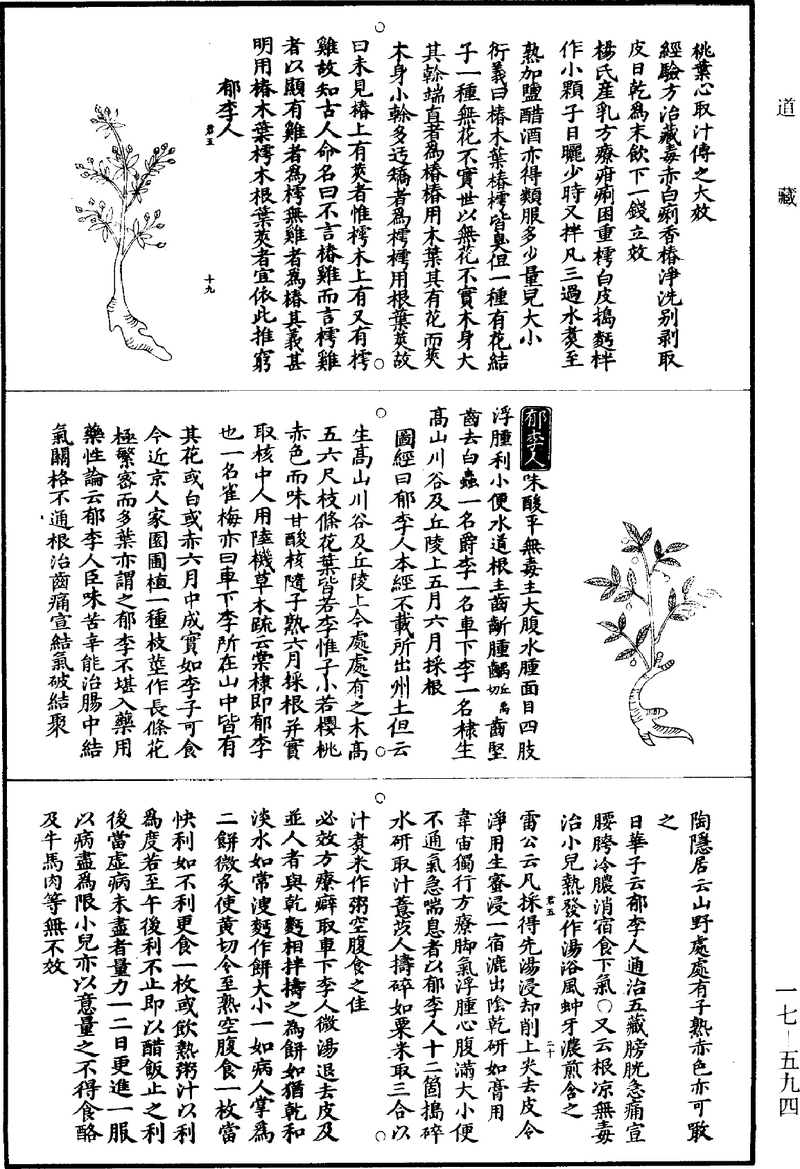 道藏
桃葉心取汁傅之大效
經驗方治藏毒赤白痢香椿淨洗剥取
皮日乾為末飲下一錢立效
楊氏産乳方療疳痢困重樗白皮搗麫拌
作小顆子日曬少時又拌凡三過水煑至
熟加鹽醋酒亦得頻服多少量兒大小
衍義曰椿木葉椿樗皆臭但一種有花結
子一種無花不實世以無花不實木身大
其幹端直者為椿椿用木葉其有花而莢
木身小幹多迂矮者為樗樗用根葉莢故
曰未見椿上有莢者惟樗木上有又有樗
雞故知古人命名曰不言椿雞而言樗雞
者以顯有雞者為樗無雞者為椿其義甚
明用椿木葉樗木根葉莢者宜依此推窮
郁李人
君五
十九
郁李人味酸平無毒主大腹水腫面目四肢
浮腫利小便水道根主齒齗腫齲丘禹切齒堅
齒去白蟲一名爵李一名車下李一名棣生
高山川谷及丘陵上五月六月採根
圖經曰郁李人本經不載所出州土但云
生高山川谷及丘陵上今處處有之木高
五六尺枝條花葉皆若李惟子小若櫻桃
赤色而味甘酸核隨子熟六月採根并實
取核中人用陸機草木疏云棠棣即郁李
也一名雀梅亦曰車下李所在山中皆有
其花或白或赤六月中成實如李子可食
今近京人家園圃植一種枝莖作長條花
極繁密而多葉亦謂之郁李不堪入藥用
藥性論云郁李人臣味苦辛能治腸中結
氣關格不通根治齒痛宣結氣破結聚
陶隱居云山野處處有子熟赤色亦可噉
之
日華子云郁李人通治五藏膀胱急痛宣
腰胯冷膿消宿食下氣○又云根凉無毒
治小兒熱發作湯浴風蚛牙濃煎含之
君五
二十
雷公云凡採得先湯浸却削上尖去皮令
淨用生蜜浸一宿漉出陰乾研如膏用
韋宙獨行方療脚氣浮腫心腹滿大小便
不通氣急喘息者以郁李人十二箇搗碎
水研取汁薏苡人擣碎如粟米取三合以
汁煑米作粥空腹食之佳
必效方療癖取車下李人微湯退去皮及
並人者與乾麫相拌擣之為餅如猶乾和
淡水如常溲麫作餅大小一如病人掌為
二餅微炙使黄切令至熟空腹食一枚當
快利如不利更食一枚或飲熱粥汁以利
為度若至午後利不止即以醋飯止之利
後當虛病未盡者量力一二日更進一服
以病盡為限小兒亦以意量之不得食酪
及牛馬肉等無不效
一七－五九四